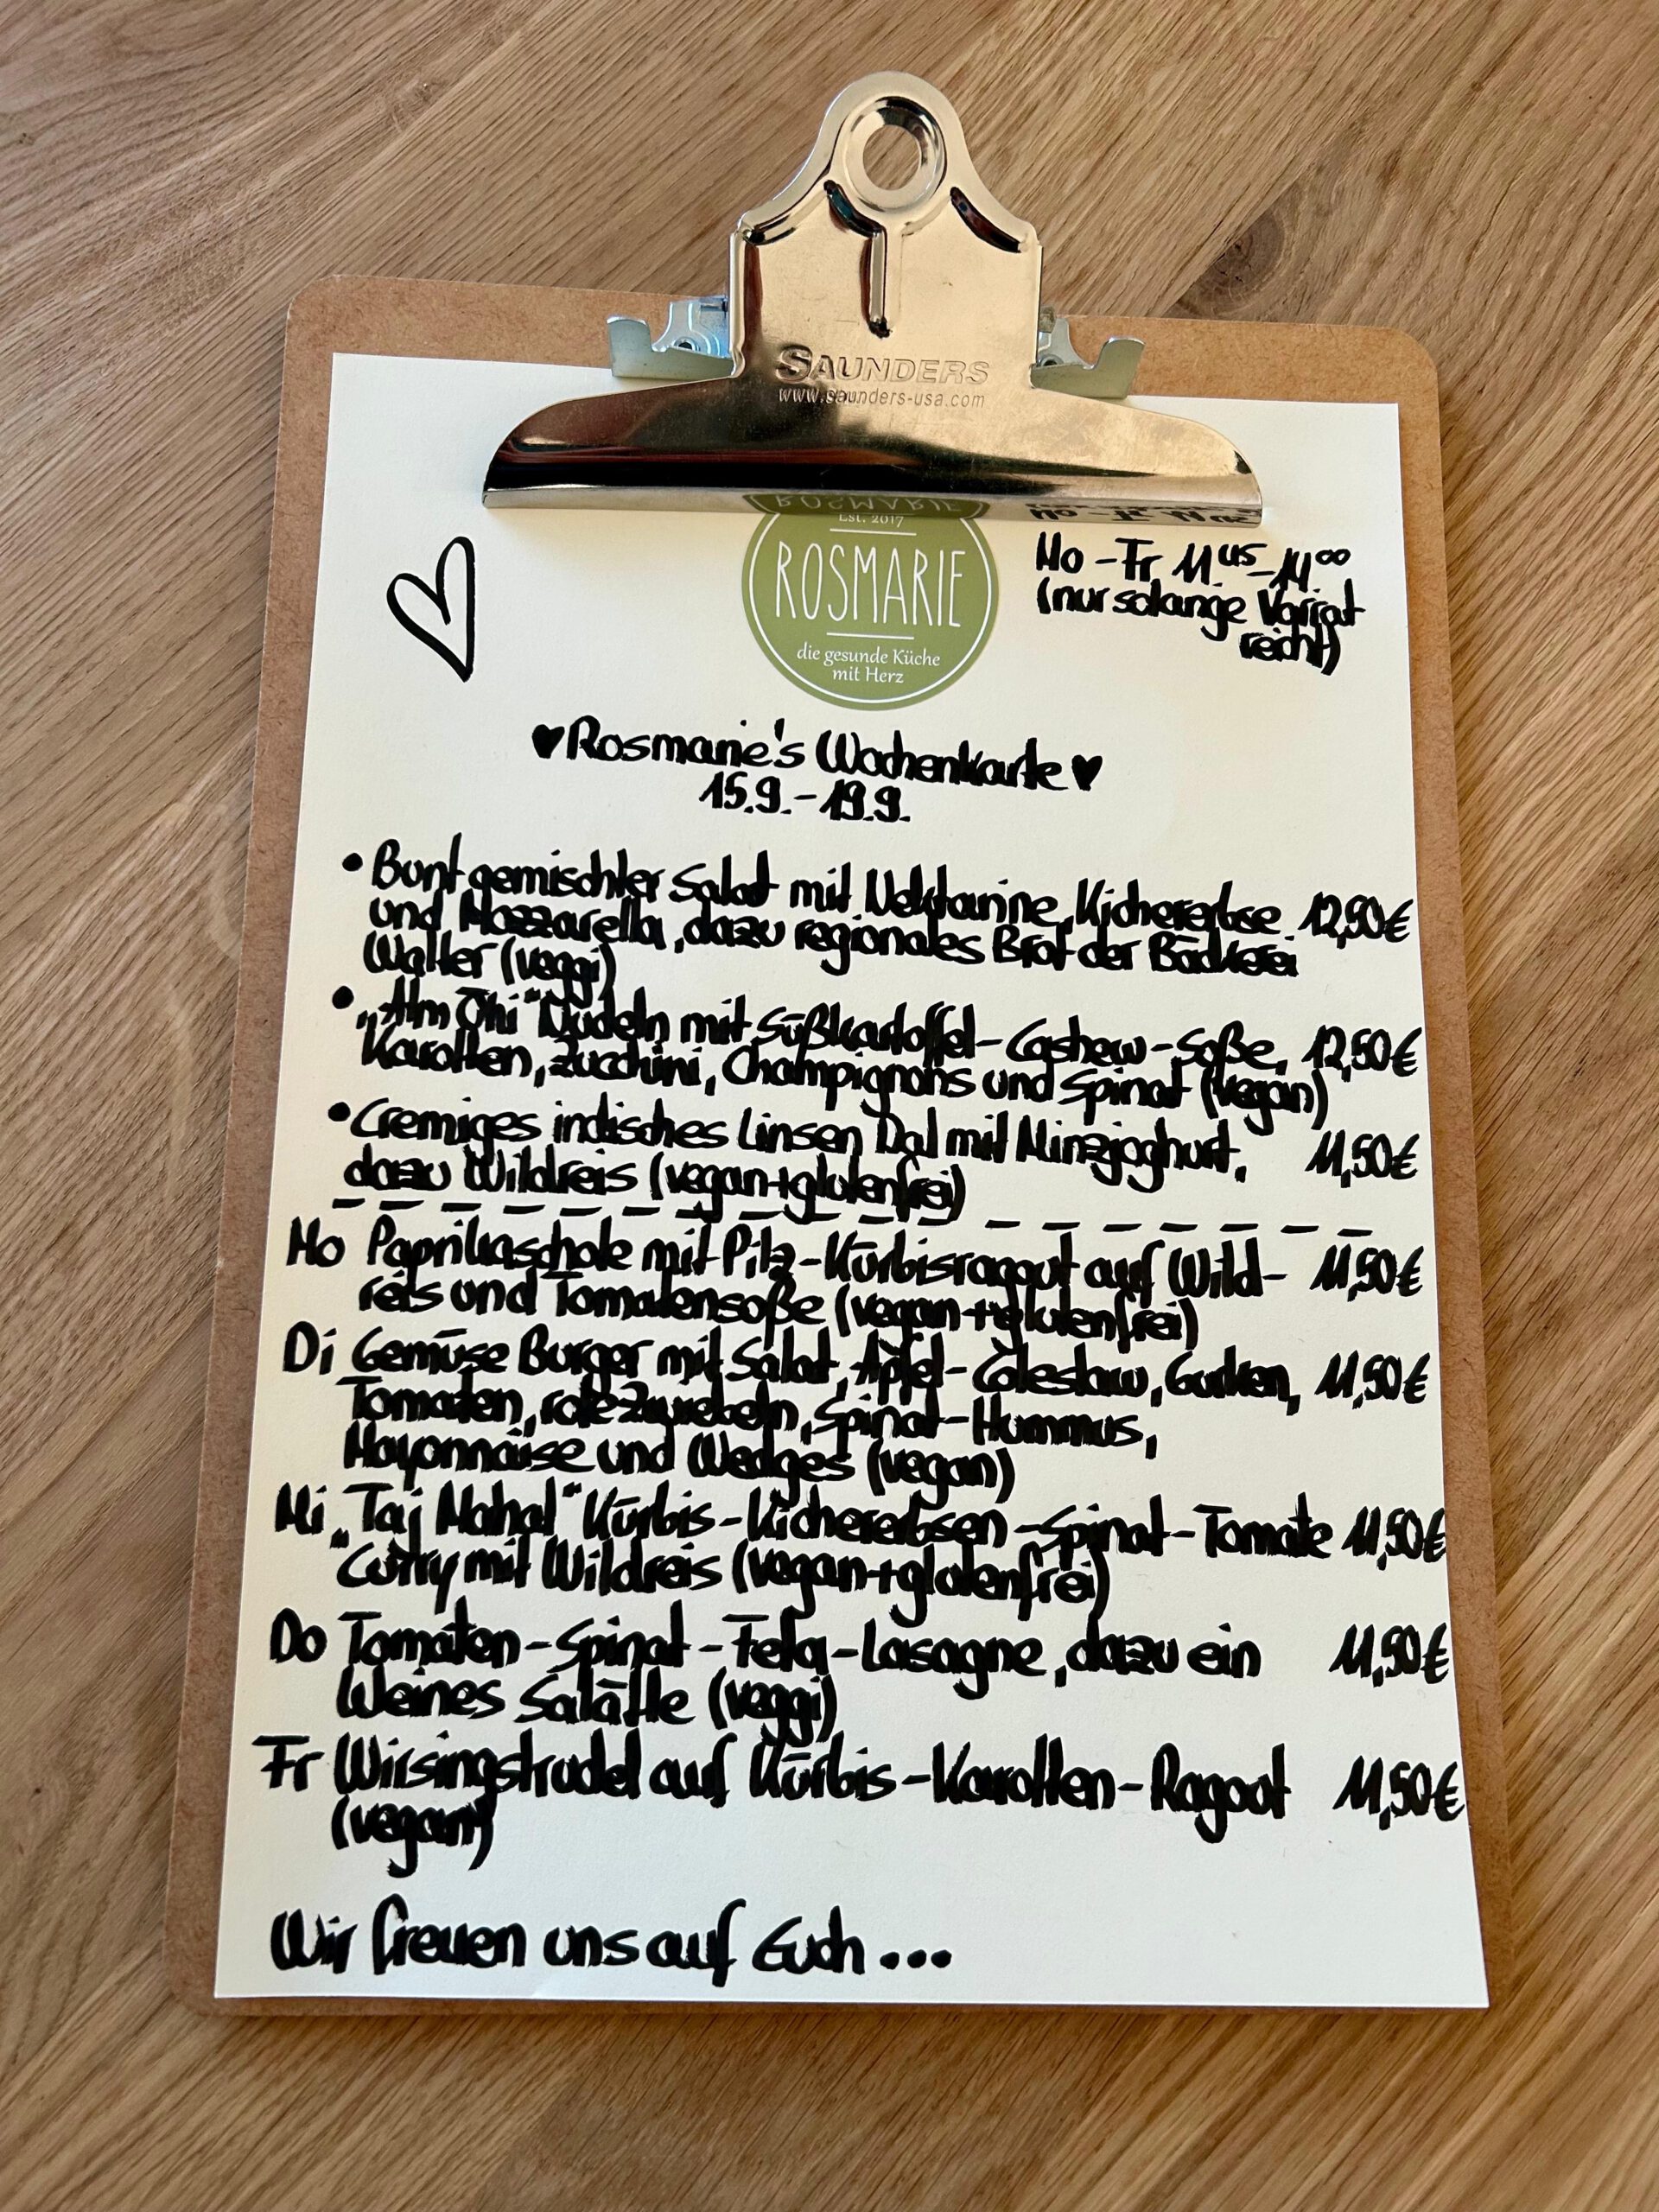 SAUNDERS
www.saunders-usa.com
EST. 2017
ROSMARIE
die gesunde Küche
mit Herz
Mo - Fr 11.45 - 14.00
(nur solange Vorrat
reicht)
♥Rosmarie's Wochenkarte♥
15.9. - 19.9.
• Bunt gemischter Salat mit Nektarine, Kichererbse 12,50€
und Mozzarella, dazu regionales Brot der Bäckerei
Walter (veggi)
• „Alm Öhi" Nudeln mit Süßkartoffel-Cashew-Soße, 12,50€
Karotten, Zucchini, Champignons und Spinat (vegan)
• Cremiges indisches Linsen Dal mit Minzjoghurt, 11,50€
dazu Wildreis (vegan+glutenfrei)
Mo Paprikaschote mit Pilz-Kürbisragout auf Wild- 11,50€
reis und Tomatensoße (vegan+glutenfrei)
Di Gemüse Burger mit Salat, Apfel-Coleslaw, Gurken, 11,50€
Tomaten, rote Zwiebeln, Spinat-Hummus,
Mayonnaise und Wedges (vegan)
Mi „Taj Mahal" Kürbis-Kichererbsen-Spinat-Tomate 11,50€
Curry mit Wildreis (vegan+glutenfrei)
Do Tomaten-Spinat-Feta-Lasagne, dazu ein 11,50€
kleines Salätle (veggi)
Fr Wirsingstrudel auf Kürbis-Karotten-Ragout 11,50€
(vegan)
Wir freuen uns auf Euch...